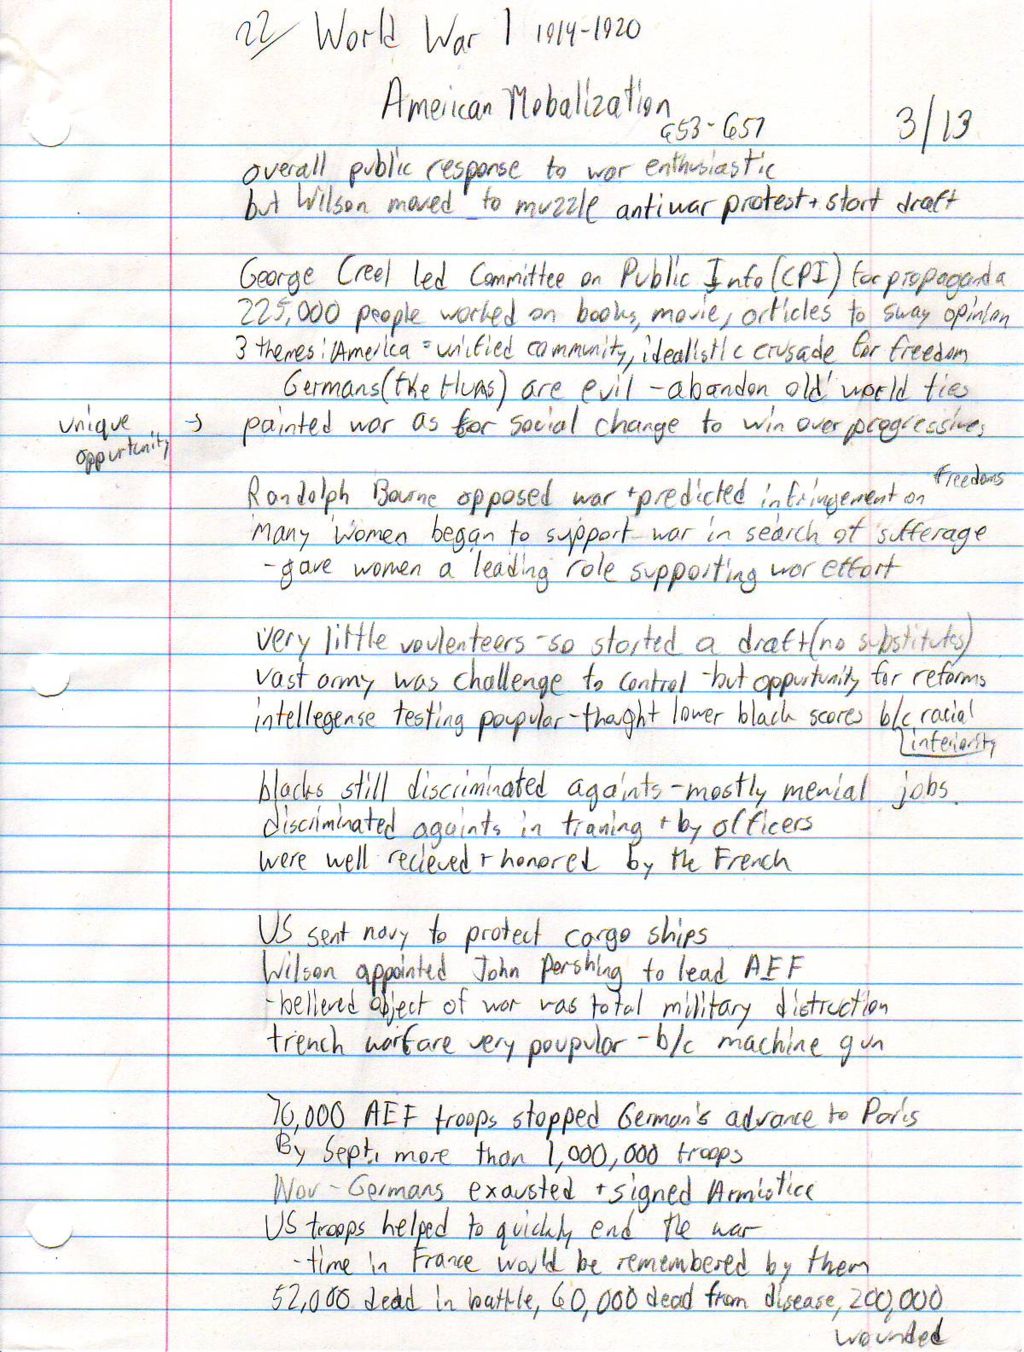 22/ World War 1 1914-1920
American Mobalization
653-657
3/13
overall public response to war enthusiastic
but Wilson moved to muzzle antiwar protest + start draft
George Creel led Committee on Public Info (CPI) for propaganda
225,000 people worked on books, movie, articles to sway opinion
3 themes: America = unified community, idealistic crusade for freedom
Germans (the Huns) are evil - abandon old world ties
unique opportunity → painted war as for social change to win over progressives
Randolph Bourne opposed war + predicted infringement on freedoms
many women began to support war in search of sufferage
- gave women a leading role supporting war effort
very little voulenteers - so started a draft (no substitutes)
vast army was challenge to control - but oppurtunity for reforms
intellegense testing poupular - thought lower black scores b/c racial
inferiority
blacks still discriminated againts - mostly menial jobs.
discriminated againts in traning + by officers
were well recieved + honored by the French
US sent navy to protect cargo ships
Wilson appointed John Pershing to lead AEF
- believed object of war was total military distruction
trench warfare very poupular - b/c machine gun
70,000 AEF troops stopped German's advance to Paris
By Sept. more than 1,000,000 troops
Nov - Germans exausted + signed Armistice
US troops helped to quickly end the war
- time in France would be remembered by them
52,000 dead in battle, 60,000 dead from disease, 200,000
wounded